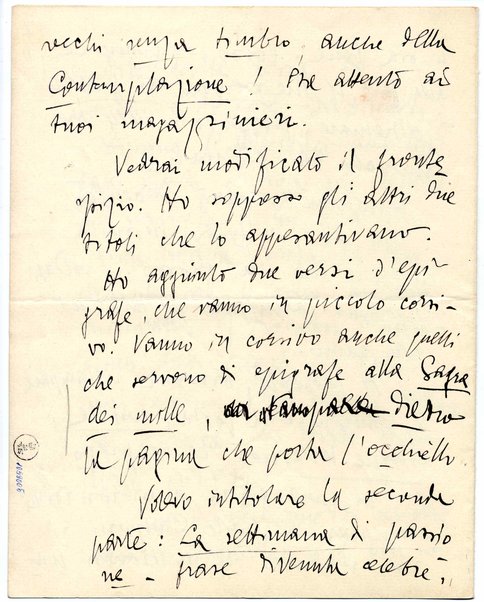 vecchi senza timbro, anche della
Contemplazione! Sta attento ai
tuoi magazzinieri.
Vedrai modificato il fronte
spizio. Ho soppresso gli altri due
titoli che lo appesantivano.
Ho aggiunto due versi d'epi
grafe, che vanno in piccolo corsi-
vo. Vanno in corsivo anche quelli
che servono di epigrafe alla Sagra
dei mille, dietro
la pagina che porta l'occhiello.
Volevo intitolare la seconda
parte: La settimana di passio
ne - frase divenuta celebre,